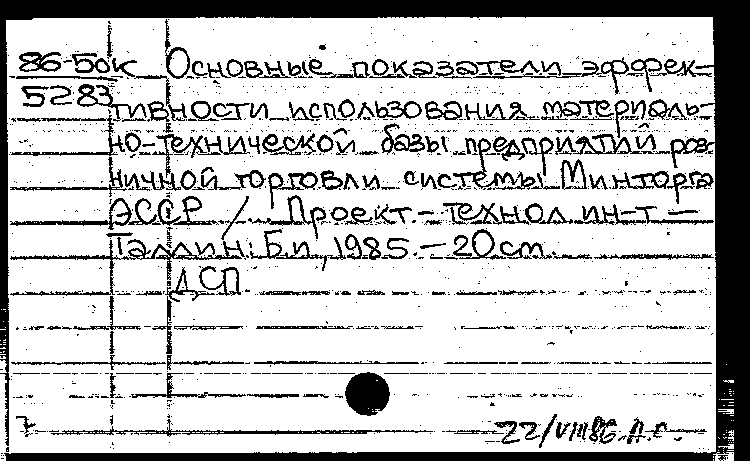 86-50к Основные показатели эффек-
5283 тивности использования материаль-
но-технической базы предприятий роз-
ничной торговли системы Минторга
ЭССР / ... Проект.-технол. ин-т. —
Таллин: Б.и., 1985. — 20 см.
ДСП.
7
22/VIII86. А.С.